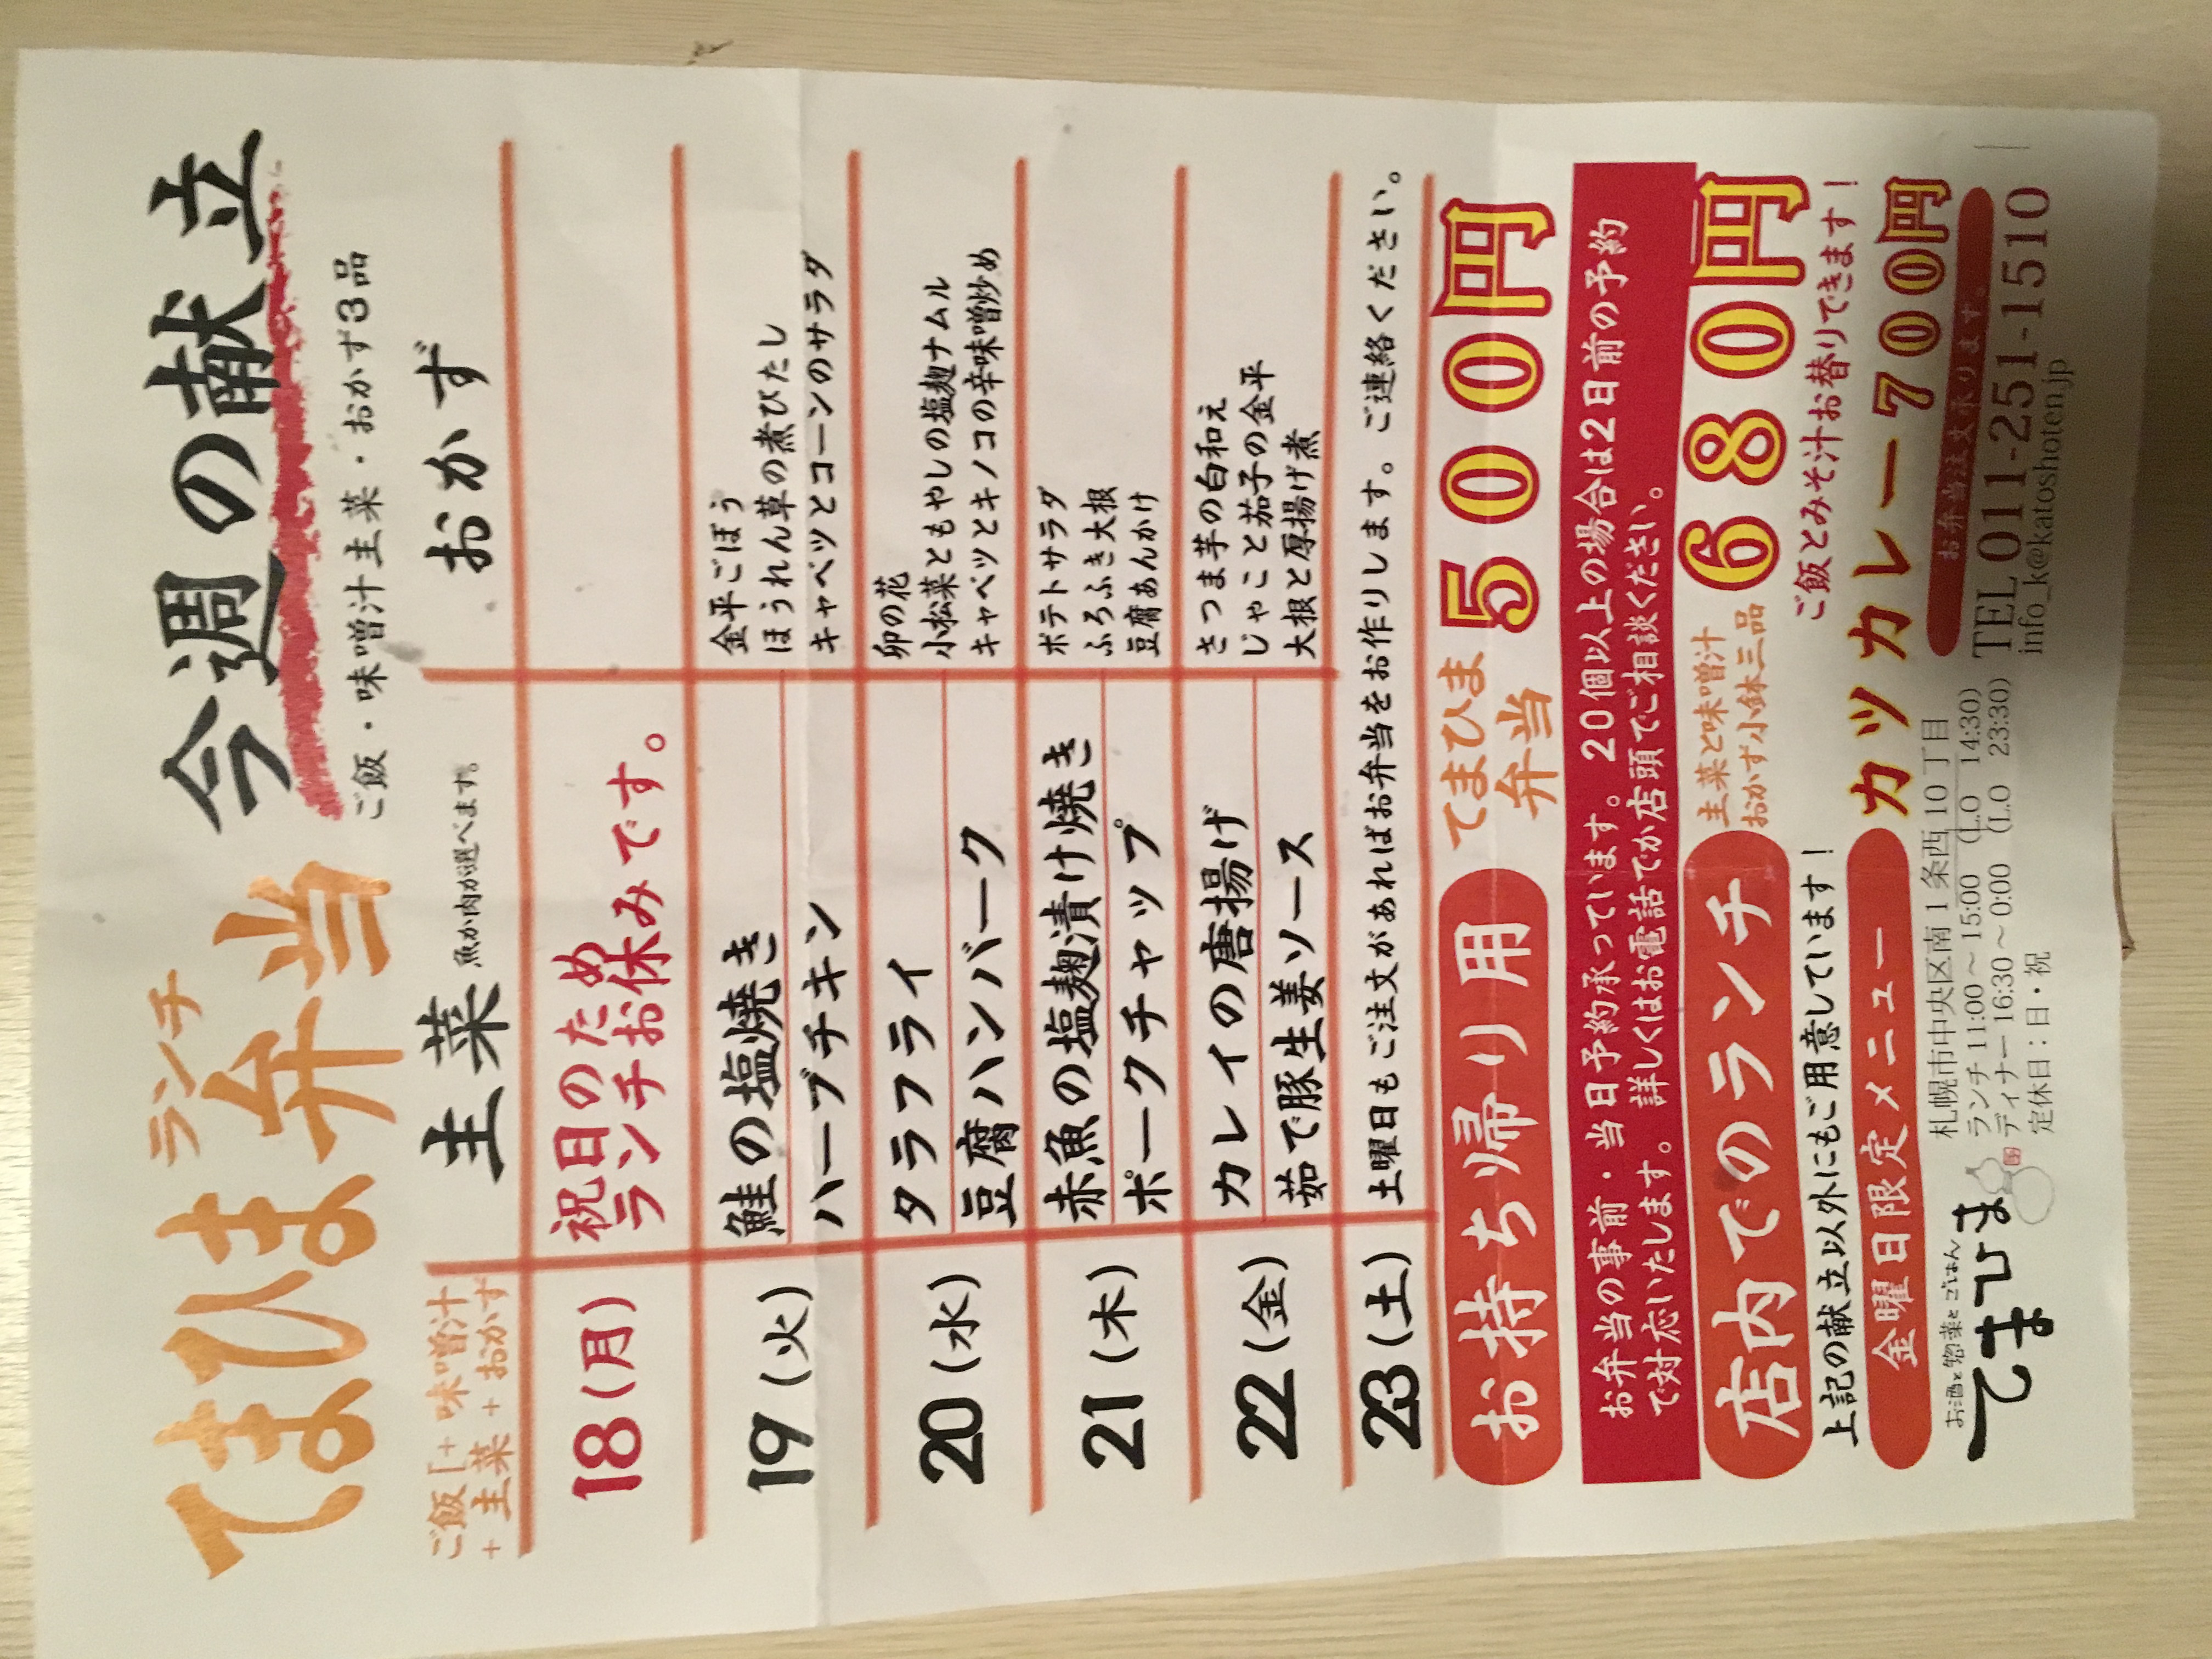 てまひま弁当
ランチ
今週の献立
ご飯・味噌汁主菜・おかず3品
ご飯「+ 味噌汁
+ 主菜 + おかず
主菜 魚か肉が選べます。
おかず
18(月)
祝日のため
ランチお休みです。
19(火)
鮭の塩焼き
ハーブチキン
金平ごぼう
ほうれん草の煮びたし
キャベツとコーンのサラダ
20(水)
タラフライ
豆腐ハンバーク
卯の花
小松菜ともやしの塩麹ナムル
キャベツとキノコの辛味噌炒め
21(木)
赤魚の塩麹漬け焼き
ポークチャップ
ポテトサラダ
ふろふき大根
豆腐あんかけ
22(金)
カレイの唐揚げ
茹で豚生姜ソース
さつま芋の白和え
じゃこと茄子の金平
大根と厚揚げ煮
23(土)
土曜日もご注文があればお弁当をお作りします。ご連絡ください。
お持ち帰り用
てまひま
弁当
500円
お弁当の事前・当日予約承っています。20個以上の場合は2日前の予約
で対応いたします。詳しくはお電話でか店頭でご相談ください。
店内でのランチ
主菜と味噌汁
おかず小鉢三品
680円
上記の献立以外にもご用意しています!
ご飯とみそ汁お替りできます!
金曜日限定メニュー
カツカレー700円
お酒と惣菜とごはん
てまひま
札幌市中央区南1条西10丁目
ランチ 11:00~15:00 (L.O 14:30)
ディナー 16:30~0:00 (L.O 23:30)
定休日:日・祝
お弁当注文承ります。
TEL 011-251-1510
info_k@katoshoten.jp